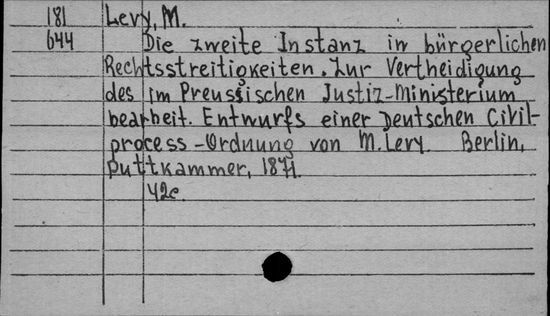 181 Levy, M.
644 Die zweite Instanz in bürgerlichen
Rechtsstreitigkeiten. Zur Vertheidigung
des im Preussischen Justiz-Ministerium
bearbeit. Entwurfs einer Deutschen Civil-
process-Ordnung von M. Levy. Berlin,
Puttkammer, 1871.
42c.